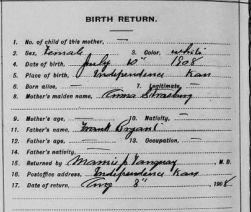 BIRTH RETURN.
1. No. of child of this mother, —
2. Sex, Female 3. Color, white
4. Date of birth, July 10" 1908
5. Place of birth, Independence Kan
6. Born alive, — 7. Legitimate —
8. Mother's maiden name, Anna Strasburg
9. Mother's age, — 10. Nativity, —
11. Father's name, Frank Bryant
12. Father's age, — 13. Occupation, —
14. Father's nativity, —
15. Returned by Mamie J. Tanquay , M. D.
16. Postoffice address, Independence Kan
17. Date of return, Aug 8" , 1908